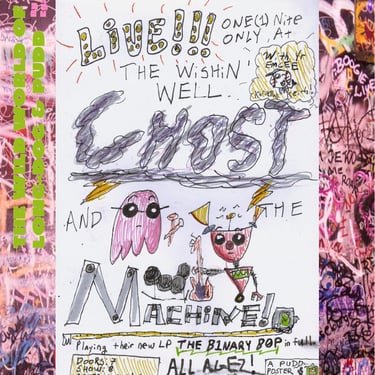 THE WILD WORLD OF
LONG DOG & PUDD
LIVE!!!
ONE(1) Nite
ONLY, At
THE WISHIN'
WELL..
With yr
EMCEE
GHOST
AND THE
MACHINE!
Playing their new LP THE BINARY BOP in full
DOORS: 7
SHOW: 8
ALL AGEZ!
A PUDD
POSTER